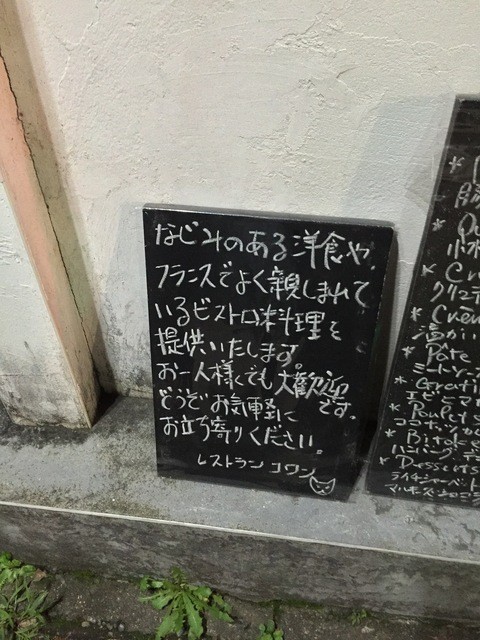 なじみのある洋食や、
フランスでよく親しまれて
いるビストロ料理を
提供いたします。
お一人様でも大歓迎
です。
どうぞお気軽に
お立ち寄りください。
レストラン コワン
*
*
* Cr
* Crem
温かい
* Pate
ミートソース
* Gratin
エビとマカ
* Poulet
ココナッツカ
* Bitok
ハンバーグ デ
* Desserts
ライチシャーベット